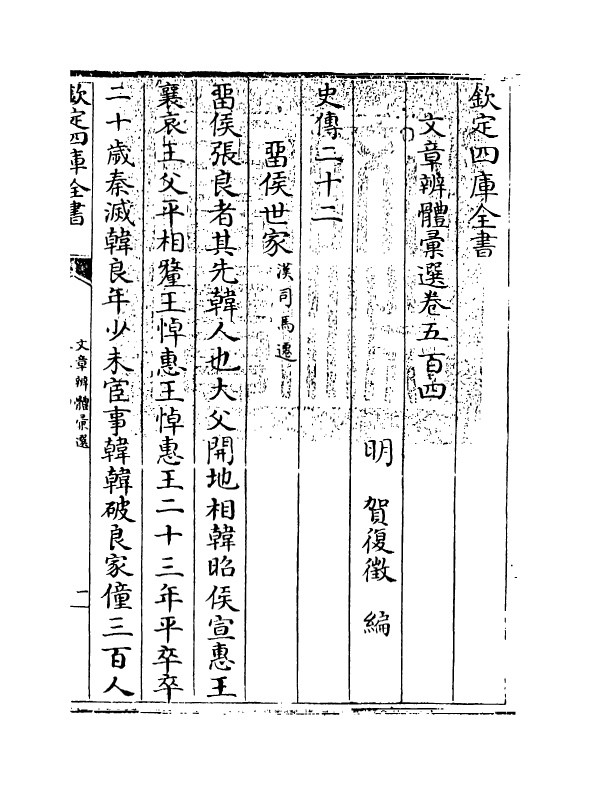 欽定四庫全書
文章辨體彙選卷五百四
明 賀復徵 編
史傳二十二
畱侯世家漢司馬遷
畱侯張良者其先韓人也大父開地相韓昭侯宣惠王
襄哀王父平相釐王悼惠王悼惠王二十三年平卒卒
二十歲秦滅韓良年少未宦事韓韓破良家僮三百人
欽定四庫全書
文章辨體彙選
一